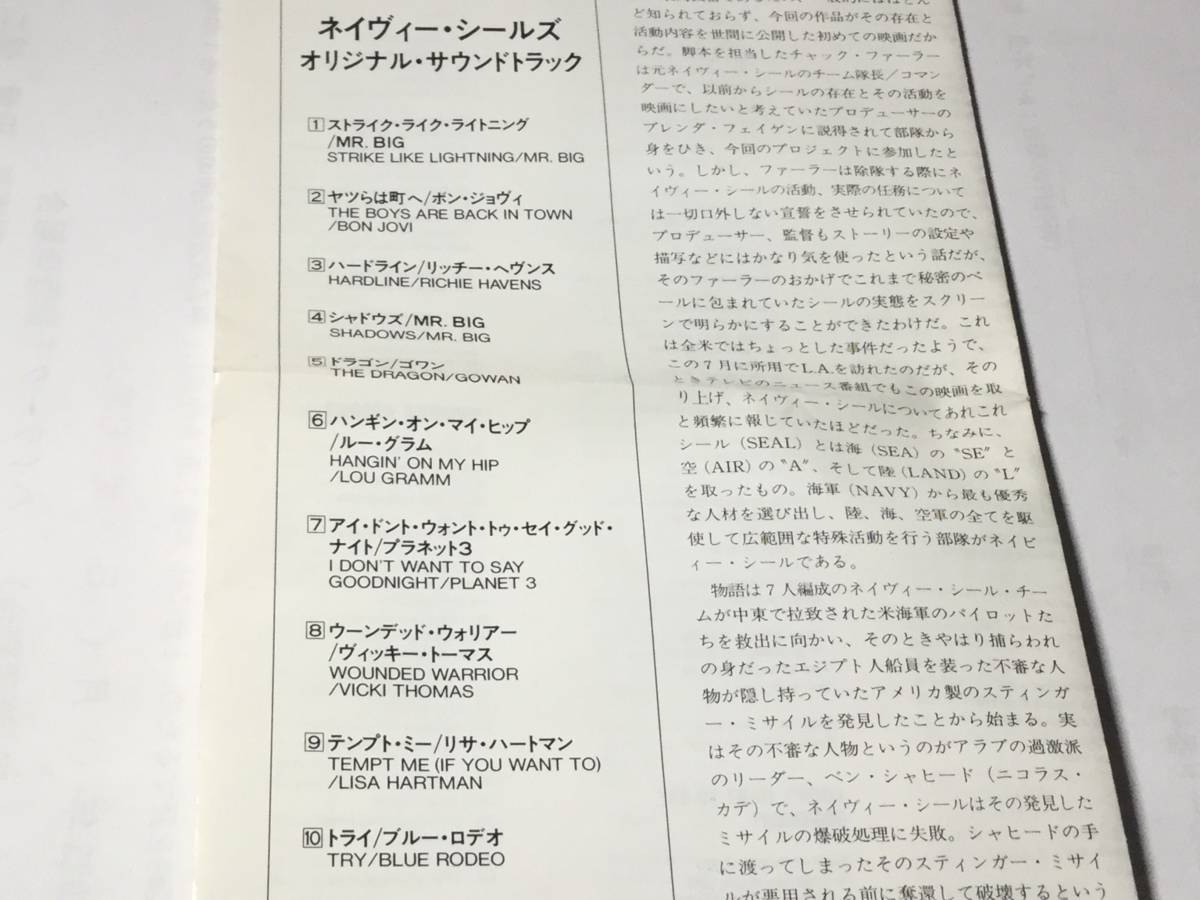 ネイヴィー・シールズ
オリジナル・サウンドトラック
1 ストライク・ライク・ライトニング
/MR. BIG
STRIKE LIKE LIGHTNING/MR. BIG
2 ヤツらは町へ/ボン・ジョヴィ
THE BOYS ARE BACK IN TOWN
/BON JOVI
3 ハードライン/リッチー・ヘヴンス
HARDLINE/RICHIE HAVENS
4 シャドウズ/MR. BIG
SHADOWS/MR. BIG
5 ドラゴン/ゴワン
THE DRAGON/GOWAN
6 ハンギン・オン・マイ・ヒップ
/ルー・グラム
HANGIN' ON MY HIP
/LOU GRAMM
7 アイ・ドント・ウォント・トゥ・セイ・グッド・
ナイト/プラネット3
I DON'T WANT TO SAY
GOODNIGHT/PLANET 3
8 ウーンデッド・ウォリアー
/ヴィッキー・トーマス
WOUNDED WARRIOR
/VICKI THOMAS
9 テンプト・ミー/リサ・ハートマン
TEMPT ME (IF YOU WANT TO)
/LISA HARTMAN
10 トライ/ブルー・ロデオ
TRY/BLUE RODEO
ど知られておらず、今回の作品がその存在と
活動内容を世間に公開した初めての映画だか
らだ。脚本を担当したチャック・ファーラー
は元ネイヴィー・シールのチーム隊長/コマン
ダーで、以前からシールの存在とその活動を
映画にしたいと考えていたプロデューサーの
ブレンダ・フェイゲンに説得されて部隊から
身をひき、今回のプロジェクトに参加したと
いう。しかし、ファーラーは除隊する際にネ
イヴィー・シールの活動、実際の任務について
は一切口外しない宣誓をさせられていたので、
プロデューサー、監督もストーリーの設定や
描写などにはかなり気を使ったという話だが、
そのファーラーのおかげでこれまで秘密のベ
ールに包まれていたシールの実態をスクリー
ンで明らかにすることができたわけだ。これ
は全米ではちょっとした事件だったようで、
この7月に所用でL.A.を訪れたのだが、その
ときテレビのニュース番組でもこの映画を取
り上げ、ネイヴィー・シールについてあれこれ
と頻繁に報じていたほどだった。ちなみに、
シール（SEAL）とは海（SEA）の〝SE〟と
空（AIR）の〝A〟、そして陸（LAND）の〝L〟
を取ったもの。海軍（NAVY）から最も優秀
な人材を選び出し、陸、海、空軍の全てを駆
使して広範囲な特殊活動を行う部隊がネイビ
ィー・シールである。
物語は7人編成のネイヴィー・シール・チー
ムが中東で拉致された米海軍のパイロットた
ちを救出に向かい、そのときやはり捕らわれ
の身だったエジプト人船員を装った不審な人
物が隠し持っていたアメリカ製のスティンガ
ー・ミサイルを発見したことから始まる。実
はその不審な人物というのがアラブの過激派
のリーダー、ベン・シャヒード（ニコラス・
カデ）で、ネイヴィー・シールはその発見した
ミサイルの爆破処理に失敗。シャヒードの手
に渡ってしまったそのスティンガー・ミサイ
ルが悪用される前に奪還して破壊するという